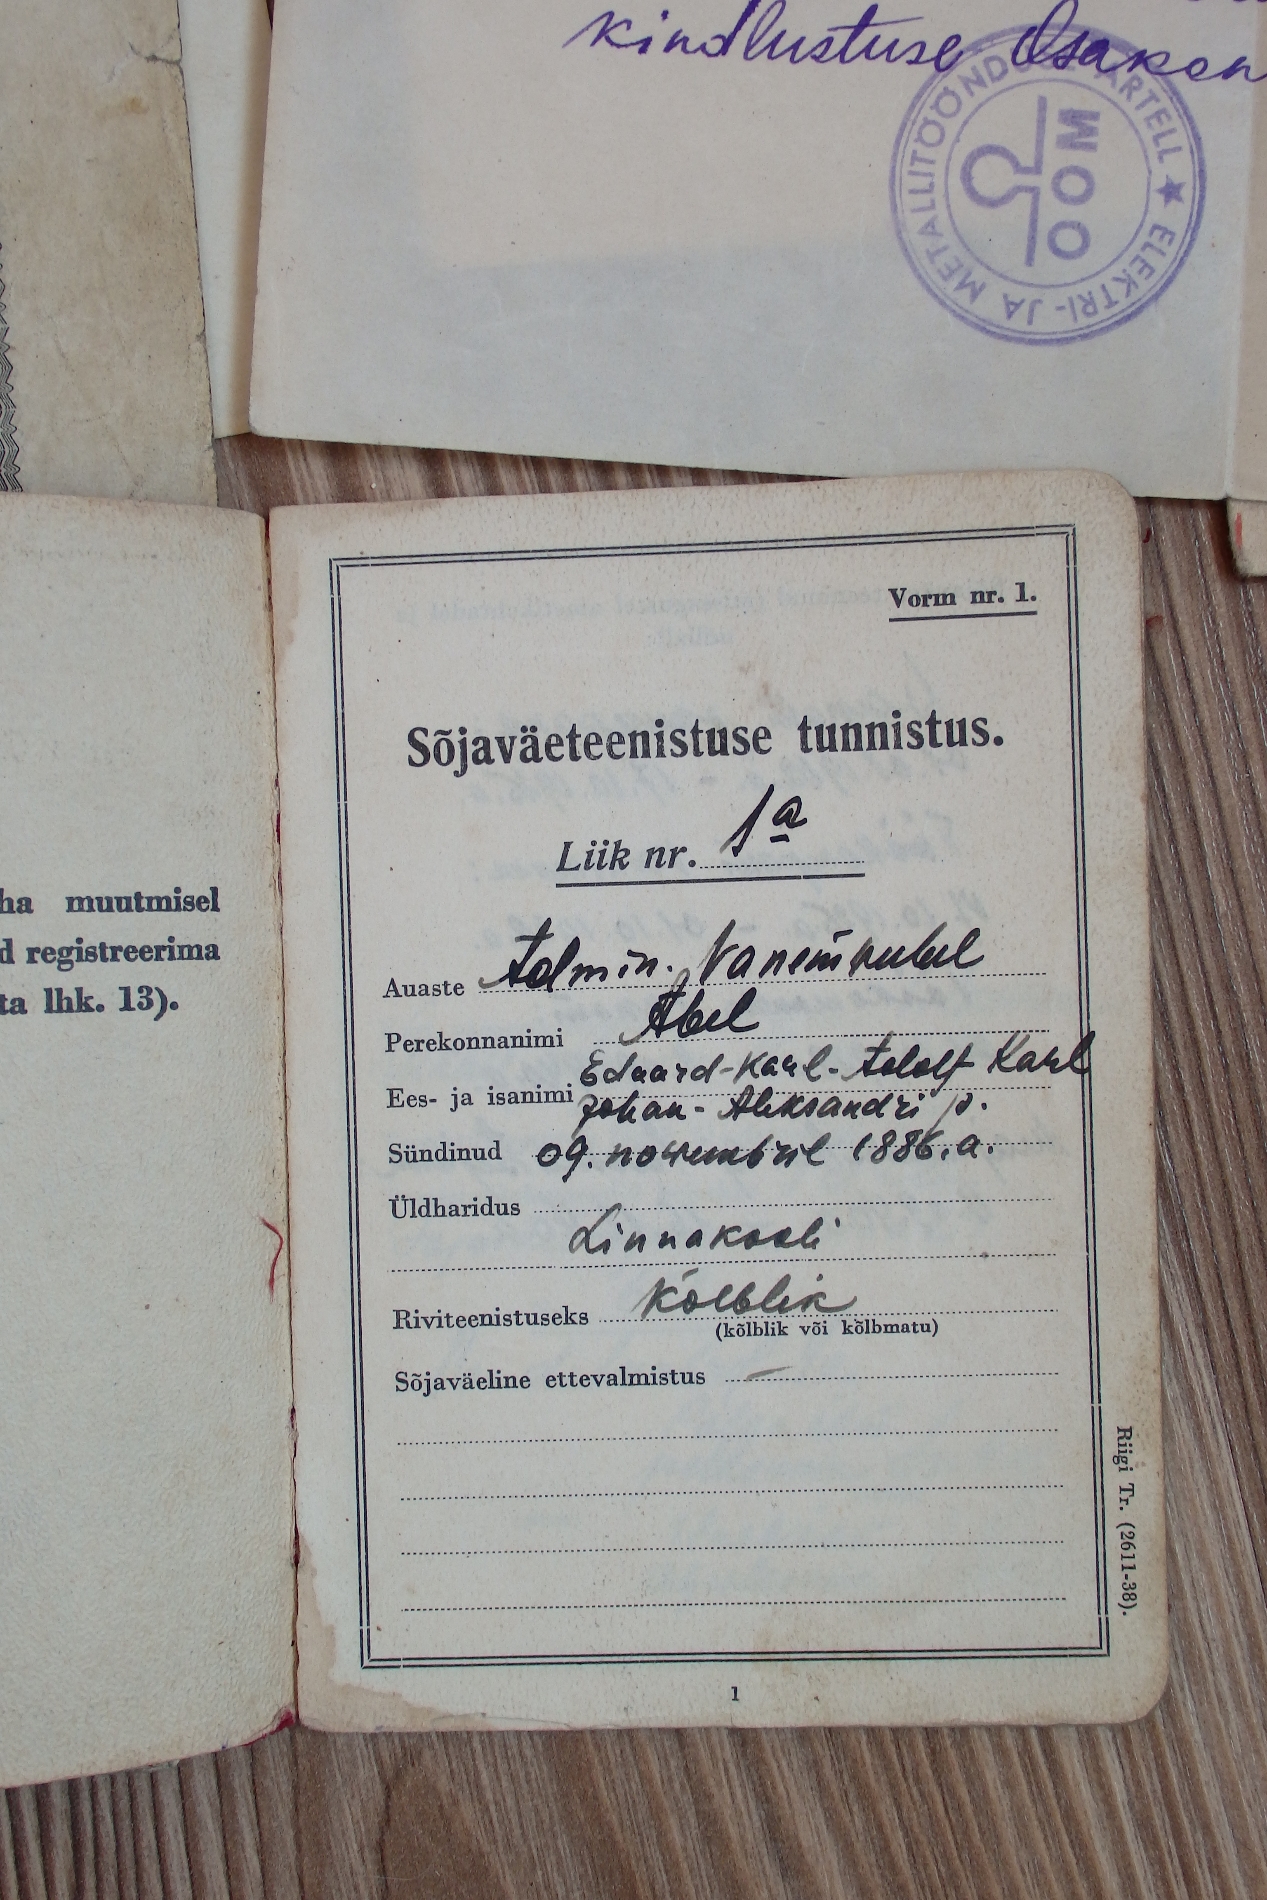 kindlustuse Osakon
ELEKTRI- JA METALLITÖÖNDUSE ARTELL ★
OOM
ha muutmisel
d registreerima
ta lhk. 13).
Vorm nr. 1.
Sõjaväeteenistuse tunnistus.
Liik nr. 1a
Auaste Admin. Vanemveebel
Perekonnanimi Abel
Ees- ja isanimi Eduard-Karl-Adolf Karl
Johan-Aleksandri p.
Sündinud 09. novembril 1886.a.
Üldharidus
Linnakooli
Riviteenistuseks Kõlblik
(kõlblik või kõlbmatu)
Sõjaväeline ettevalmistus —
Riigi Tr. (2611-38).
1